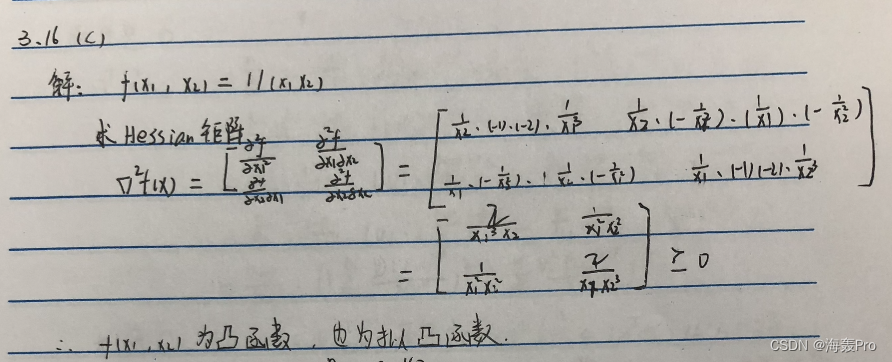 3.16 (C)
解: f(x₁, x₂) = 1/(x₁x₂)
求 Hessian 矩阵
∇²f(x) = [ ∂²f/∂x₁² ∂²f/∂x₁∂x₂ ; ∂²f/∂x₂∂x₁ ∂²f/∂x₂∂x₂ ] = [ 1/x₂·(-1)·(-2)·1/x₁³ ; 1/x₁·(-1)(-2)·1/x₂³ ]
= [ 2/(x₁³x₂) 1/(x₁²x₂²) ; 1/(x₁²x₂²) 2/(x₁x₂³) ] ≥ 0
∴ f(x₁, x₂) 为凸函数, 也为拟凸函数.
CSDN @海轰Pro